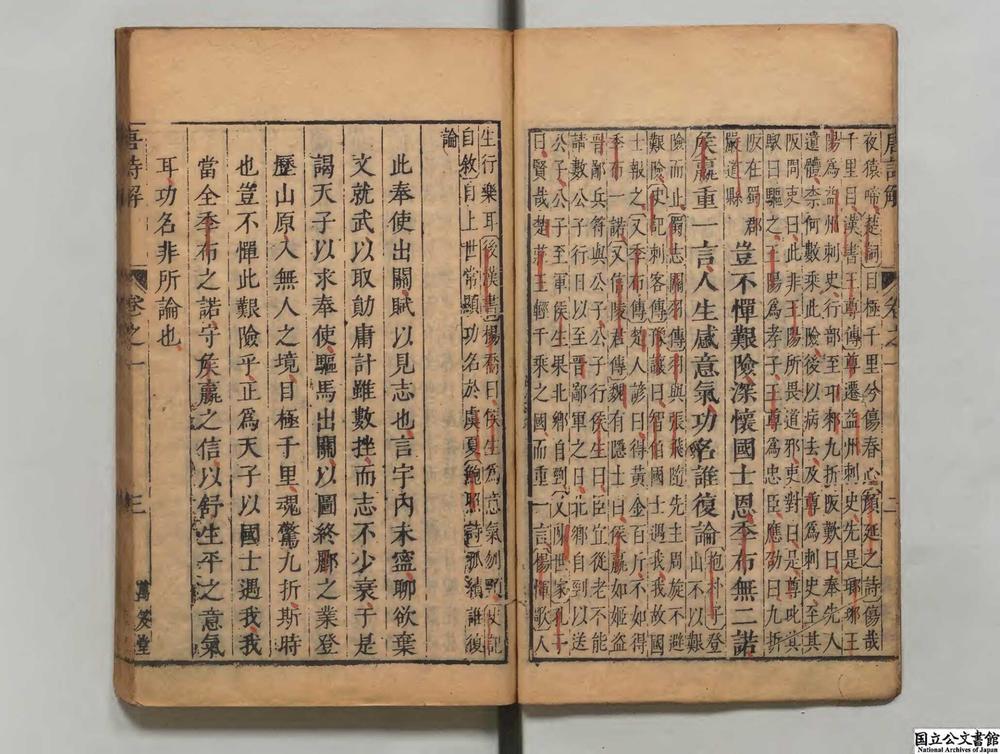 唐詩解
卷之一
二
夜猿啼楚詞曰極千里兮傷春心顏延之詩傷哉
千里目漢書王尊傳尊遷益州刺史先是瑯琊王
陽為益州刺史行部至卭郲九折阪歎曰奉先人
遺體柰何數乗此險後以病去及尊為刺史至其
阪問吏曰此非王陽所畏道邪吏對曰是尊叱其
馭曰驅之王陽為孝子王尊為忠臣應劭曰九折
阪在蜀郡
嚴道縣
豈不憚艱險深懷國士恩季布無二諾
侯嬴重一言人生感意氣功名誰復論
抱朴子登
山不以艱
險而止蜀志關羽傳羽與張飛隨先主周旋不避
艱險史記刺客傳豫讓曰智伯國士遇我我故國
士報之又季布傳楚人諺曰得黃金百斤不如得
季布一諾又信陵君傳魏有隱士曰侯嬴如姬盜
晉鄙兵符與公子公子行侯生曰臣宜從老不能
請數公子行日以至晉鄙軍之日北鄉自剄以送
公子公子至軍侯生果北鄉自剄又陳世家孔子
曰賢哉楚莊王輕千乘之國而重一言楊惲歌人
生行樂耳後漢書楊喬曰侯生為意氣刎頸史記
自敘自上世常顯功名於虞夏鮑照詩孤績誰復
論
此奉使出關賦以見志也言宇內未寧聊欲棄
文就武以取勛庸計雖數挫而志不少衰于是
謁天子以求奉使驅馬出關以圖終酈之業登
歷山原入無人之境目極千里魂驚九折斯時
也豈不憚此艱險乎正為天子以國士遇我我
當全季布之諾守侯嬴之信以舒生平之意氣
耳功名非所論也
唐詩解
卷之一
三
萬笈堂
国立公文書館
National Archives of Japan